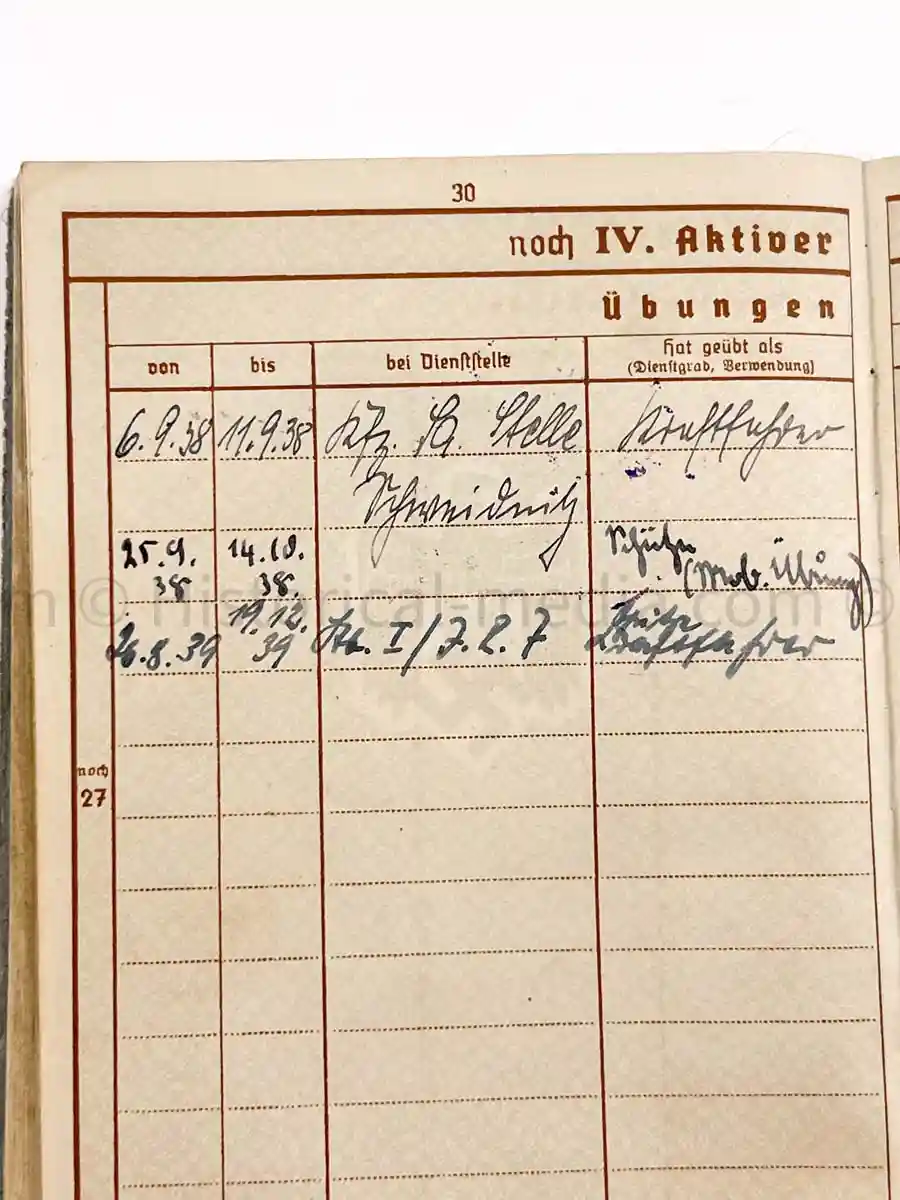 30
noch IV. Aktiver
Übungen
von bis bei Dienststelle Hat geübt als
(Dienstgrad, Verwendung)
6.9.38 11.9.38 Kfz. Sa. Stelle Kraftfahrer
Schweidnitz
25.9. 14.10. Schütze
38 38. (Mob. Übung)
19.12. Schütze
26.8.39 39 Stb. I/J.R.7 Kraftfahrer
© historical-media.com ©
noch
27